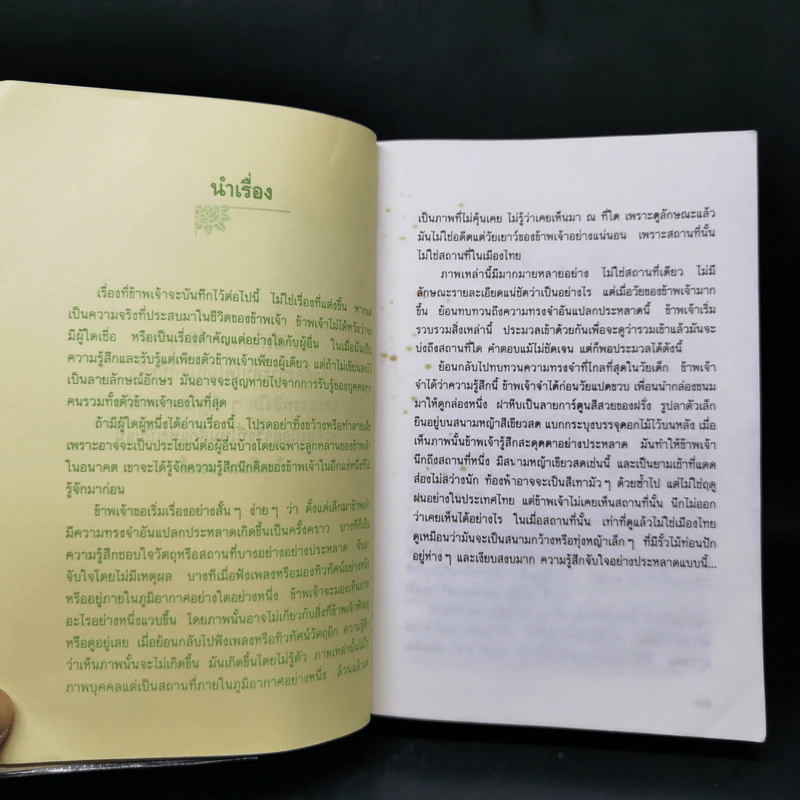 นำเรื่อง
เรื่องที่ข้าพเจ้าจะบันทึกไว้ต่อไปนี้ ไม่ใช่เรื่องที่แต่งขึ้น
เป็นความจริงที่ประสบมาในชีวิตของข้าพเจ้า ข้าพเจ้าไม่ได้หวังว่าจะ
มีผู้ใดเชื่อ หรือเป็นเรื่องสำคัญแต่อย่างใดกับผู้อื่น ในเมื่อมันเป็น
ความรู้สึกและรับรู้แต่เพียงตัวข้าพเจ้าเพียงผู้เดียว แต่ถ้าไม่เขียนลงไว้
เป็นลายลักษณ์อักษร มันอาจจะสูญหายไปจากการรับรู้ของบุคคลทุก
คนรวมทั้งตัวข้าพเจ้าเองในที่สุด
ถ้ามีผู้ใดผู้หนึ่งได้อ่านเรื่องนี้ โปรดอย่าทิ้งขว้างหรือทำลายเสีย
เพราะอาจจะเป็นประโยชน์ต่อผู้อื่นบ้างโดยเฉพาะลูกหลานของข้าพเจ้า
ในอนาคต เขาจะได้รู้จักความรู้สึกนึกคิดของข้าพเจ้าในอีกแง่หนึ่งที่ไม่
รู้จักมาก่อน
ข้าพเจ้าขอเริ่มเรื่องอย่างสั้นๆ ง่ายๆ ว่า ตั้งแต่เล็กมาข้าพเจ้า
มีความทรงจำอันแปลกประหลาดเกิดขึ้นเป็นครั้งคราว บางทีก็เป็น
ความรู้สึกชอบใจวัตถุหรือสถานที่บางอย่างอย่างประหลาด
จับใจโดยไม่มีเหตุผล บางทีเมื่อฟังเพลงหรือมองทิวทัศน์อย่างหนึ่ง
หรืออยู่ภายในภูมิอากาศอย่างใดอย่างหนึ่ง ข้าพเจ้าจะมองเห็นภาพ
อะไรอย่างหนึ่งแวบขึ้น โดยภาพนั้นอาจไม่เกี่ยวกับสิ่งที่ข้าพเจ้าฟังอยู่
หรือดูอยู่เลย เมื่อย้อนกลับไปฟังเพลงหรือทิวทัศน์วัตถุอีก ความรู้สึก
ว่าเห็นภาพนั้นจะไม่เกิดขึ้น มันเกิดขึ้นโดยไม่รู้ตัว ภาพเหล่านั้นไม่ใช่
ภาพบุคคลแต่เป็นสถานที่ภายในภูมิอากาศอย่างหนึ่ง ล้วนแล้วแต่
เป็นภาพที่ไม่คุ้นเคย ไม่รู้ว่าเคยเห็นมา ณ ที่ใด เพราะดูลักษณะแล้ว
มันไม่ใช่อดีตแต่วัยเยาว์ของข้าพเจ้าอย่างแน่นอน เพราะสถานที่นั้น
ไม่ใช่สถานที่ในเมืองไทย
ภาพเหล่านี้มีมากมายหลายอย่าง ไม่ใช่สถานที่เดียว ไม่มี
ลักษณะรายละเอียดแน่ชัดว่าเป็นอย่างไร แต่เมื่อวัยของข้าพเจ้ามาก
ขึ้น ย้อนทบทวนถึงความทรงจำอันแปลกประหลาดนี้ ข้าพเจ้าเริ่ม
รวบรวมสิ่งเหล่านี้ ประมวลเข้าด้วยกันเพื่อจะดูว่ารวมเข้าแล้วมันจะ
บ่งถึงสถานที่ใด คำตอบแม้ไม่ชัดเจน แต่ก็พอประมวลได้ดังนี้
ย้อนกลับไปทบทวนความทรงจำที่ไกลที่สุดในวัยเด็ก ข้าพเจ้า
จำได้ว่าความรู้สึกนี้ ข้าพเจ้าจำได้ก่อนวัยแปดขวบ เพื่อนนำกล่องขนม
มาให้ดูกล่องหนึ่ง ฝาหีบเป็นลายการ์ตูนสีสวยของฝรั่ง รูปลาตัวเล็ก
ยืนอยู่บนสนามหญ้าสีเขียวสด แบกกระบุงบรรจุดอกไม้ไว้บนหลัง เมื่อ
เห็นภาพนั้นข้าพเจ้ารู้สึกสะดุดตาอย่างประหลาด มันทำให้ข้าพเจ้า
นึกถึงสถานที่หนึ่ง มีสนามหญ้าเขียวสดเช่นนี้ และเป็นยามเช้าที่แดด
ส่องไม่สว่างนัก ท้องฟ้าอาจจะเป็นสีเทามัวๆ ด้วยซ้ำไป แต่ไม่ใช่ฤดู
ฝนอย่างในประเทศไทย แต่ข้าพเจ้าไม่เคยเห็นสถานที่นั้น นึกไม่ออก
ว่าเคยเห็นได้อย่างไร ในเมื่อสถานที่นั้น เท่าที่ดูแล้วไม่ใช่เมืองไทย
ดูเหมือนว่ามันจะเป็นสนามกว้างหรือทุ่งหญ้าเล็กๆ ที่มีรั้วไม้ท่อนปัก
อยู่ห่างๆ และเงียบสงบมาก ความรู้สึกจับใจอย่างประหลาดแบบนี้...